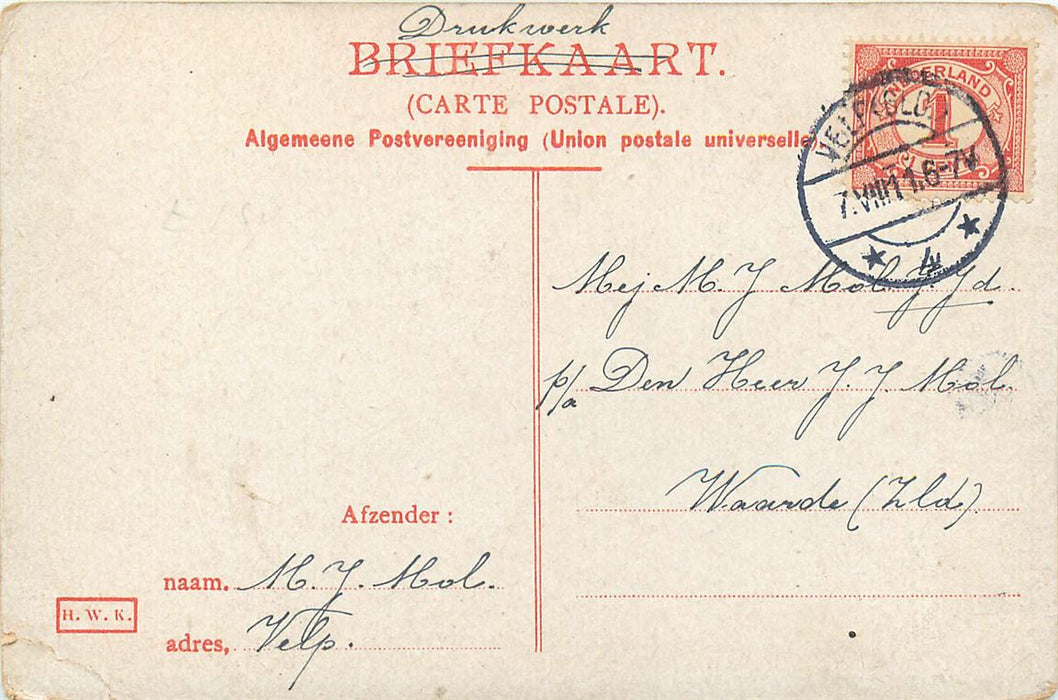 Drukwerk
BRIEFKAART.
(CARTE POSTALE).
Algemeene Postvereeniging (Union postale universelle)
NEDERLAND
1
VELP (GLD.)
7.VIII.11.6-7N
4
Mej M. J Mol J. Jd.
p/a Den Heer J. J. Mol.
Waarde (Zld)
Afzender:
naam. M. J. Mol.
adres, Velp.
H. W. K.